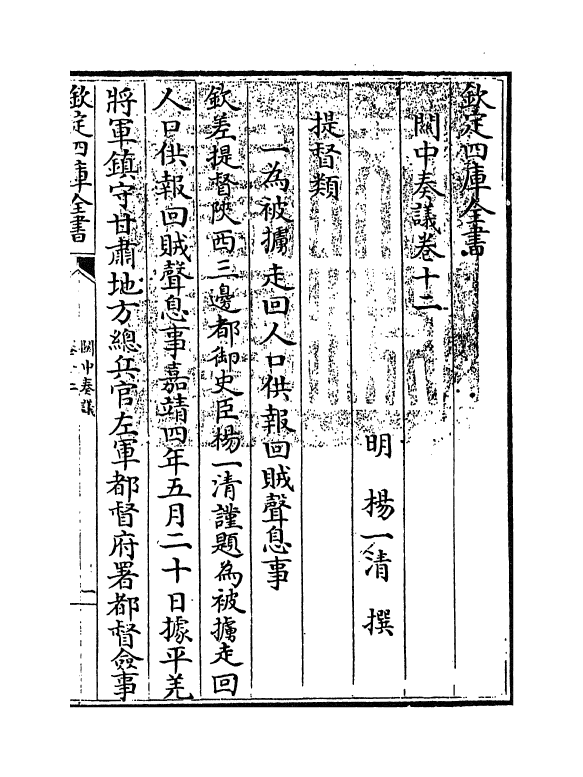 欽定四庫全書
關中奏議卷十二
明 楊一清 撰
提督類
一為被擄走回人口供報回賊聲息事
欽差提督陝西三邊都御史臣楊一清謹題為被擄走回
人口供報回賊聲息事嘉靖四年五月二十日據平羌
將軍鎮守甘肅地方總兵官左軍都督府署都督僉事
欽定四庫全書
關中奏議
卷十二
一